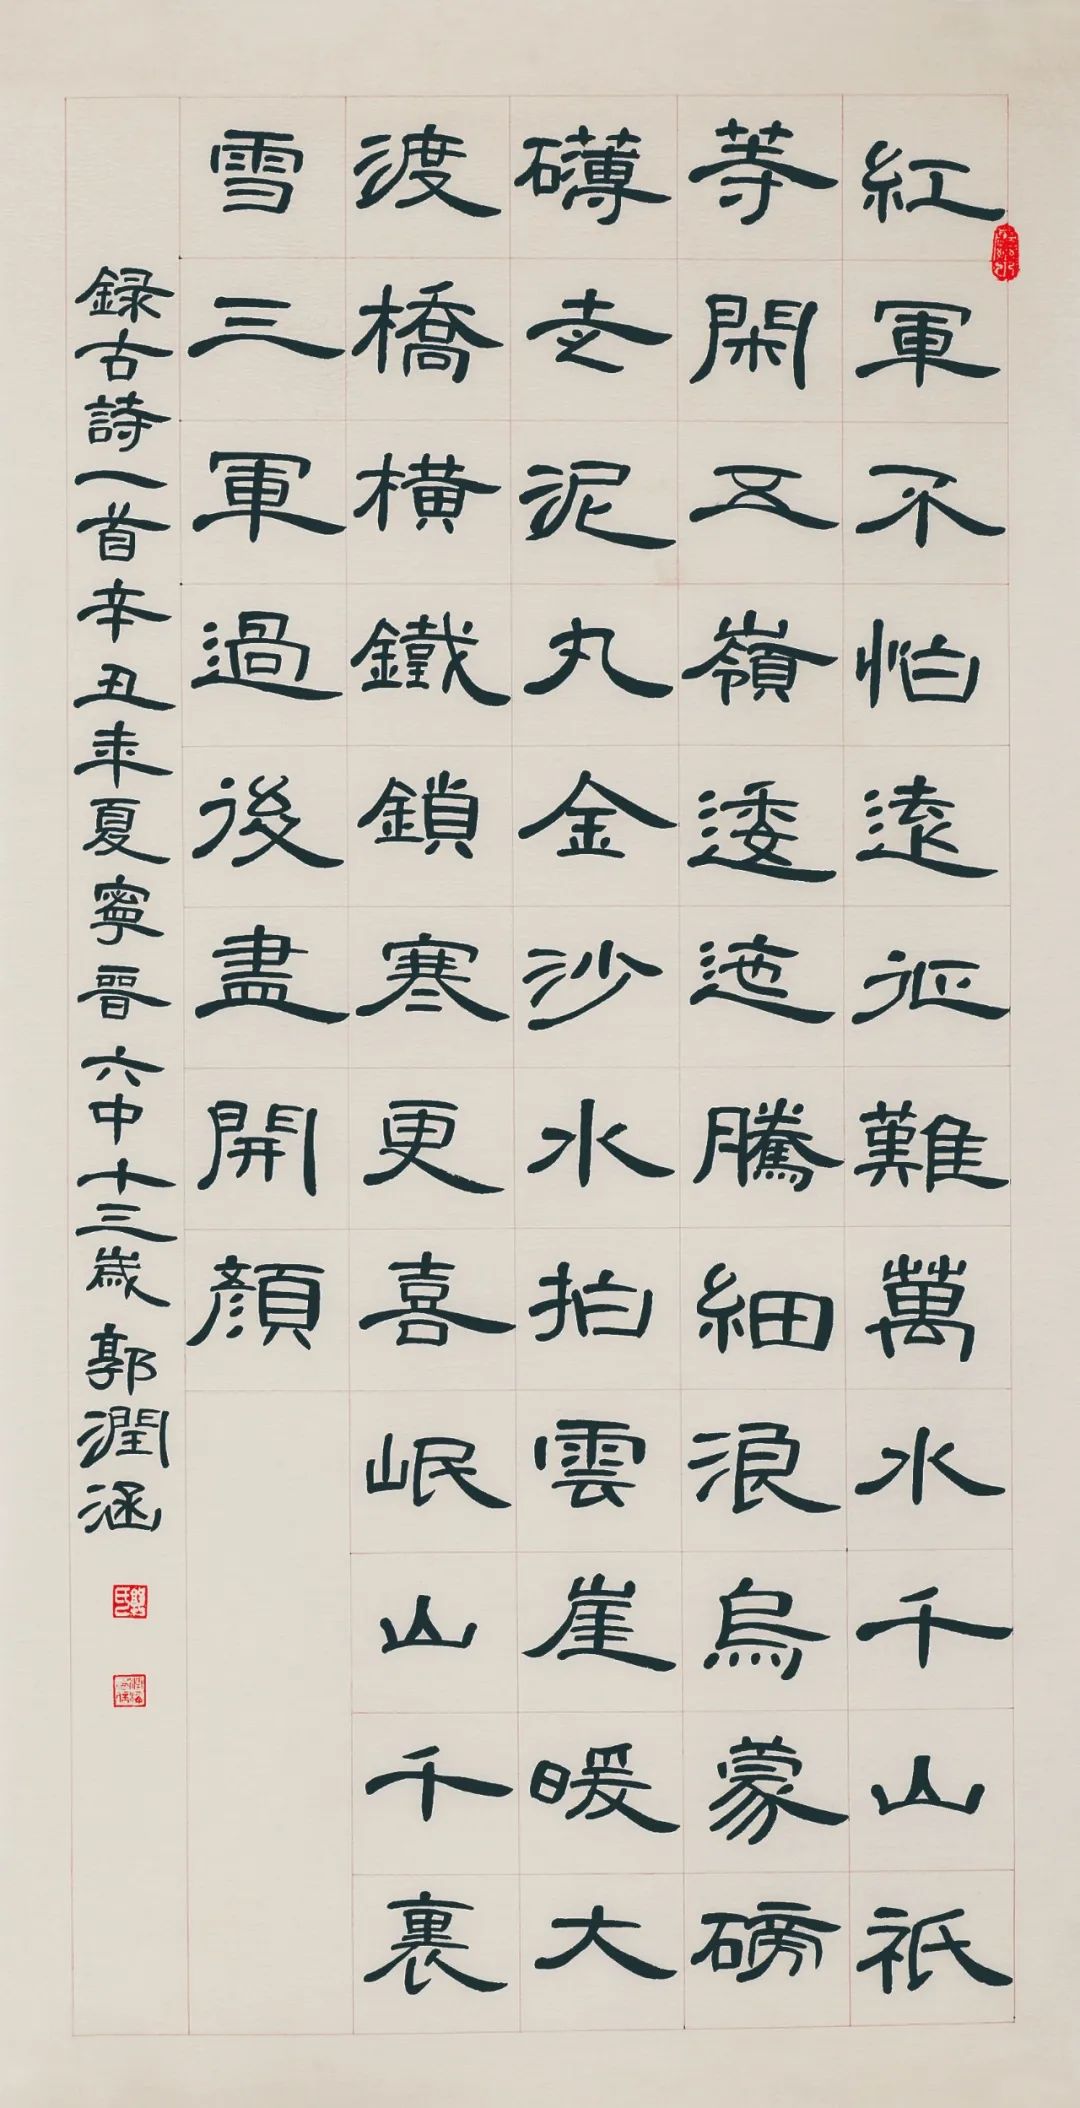 紅軍不怕遠征難萬水千山祇
等閑五嶺逶迤騰細浪烏蒙磅
礴走泥丸金沙水拍雲崖暖大
渡橋橫鐵鎖寒更喜岷山千裏
雪三軍過後盡開顏
録古詩一首辛丑年夏寧晉六中十三歲郭潤涵